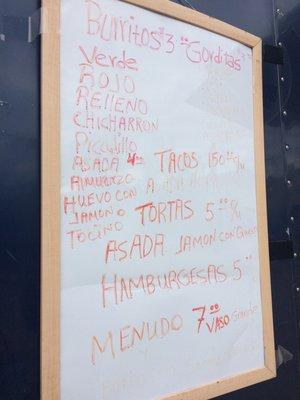 Burritos $3 Gorditas $3
Verde
ROJO
RELLENO
CHICHARRON
Picadillo
ASADA 4.00 TACOS 150 c/u
Almuerzo
HUEVO CON ASADA
JAMON O TORTAS 5.00 c/u
TOCINO
ASADA JAMON CON
HAMBURGESAS 5.00
MENUDO 7.00 VASO Grande